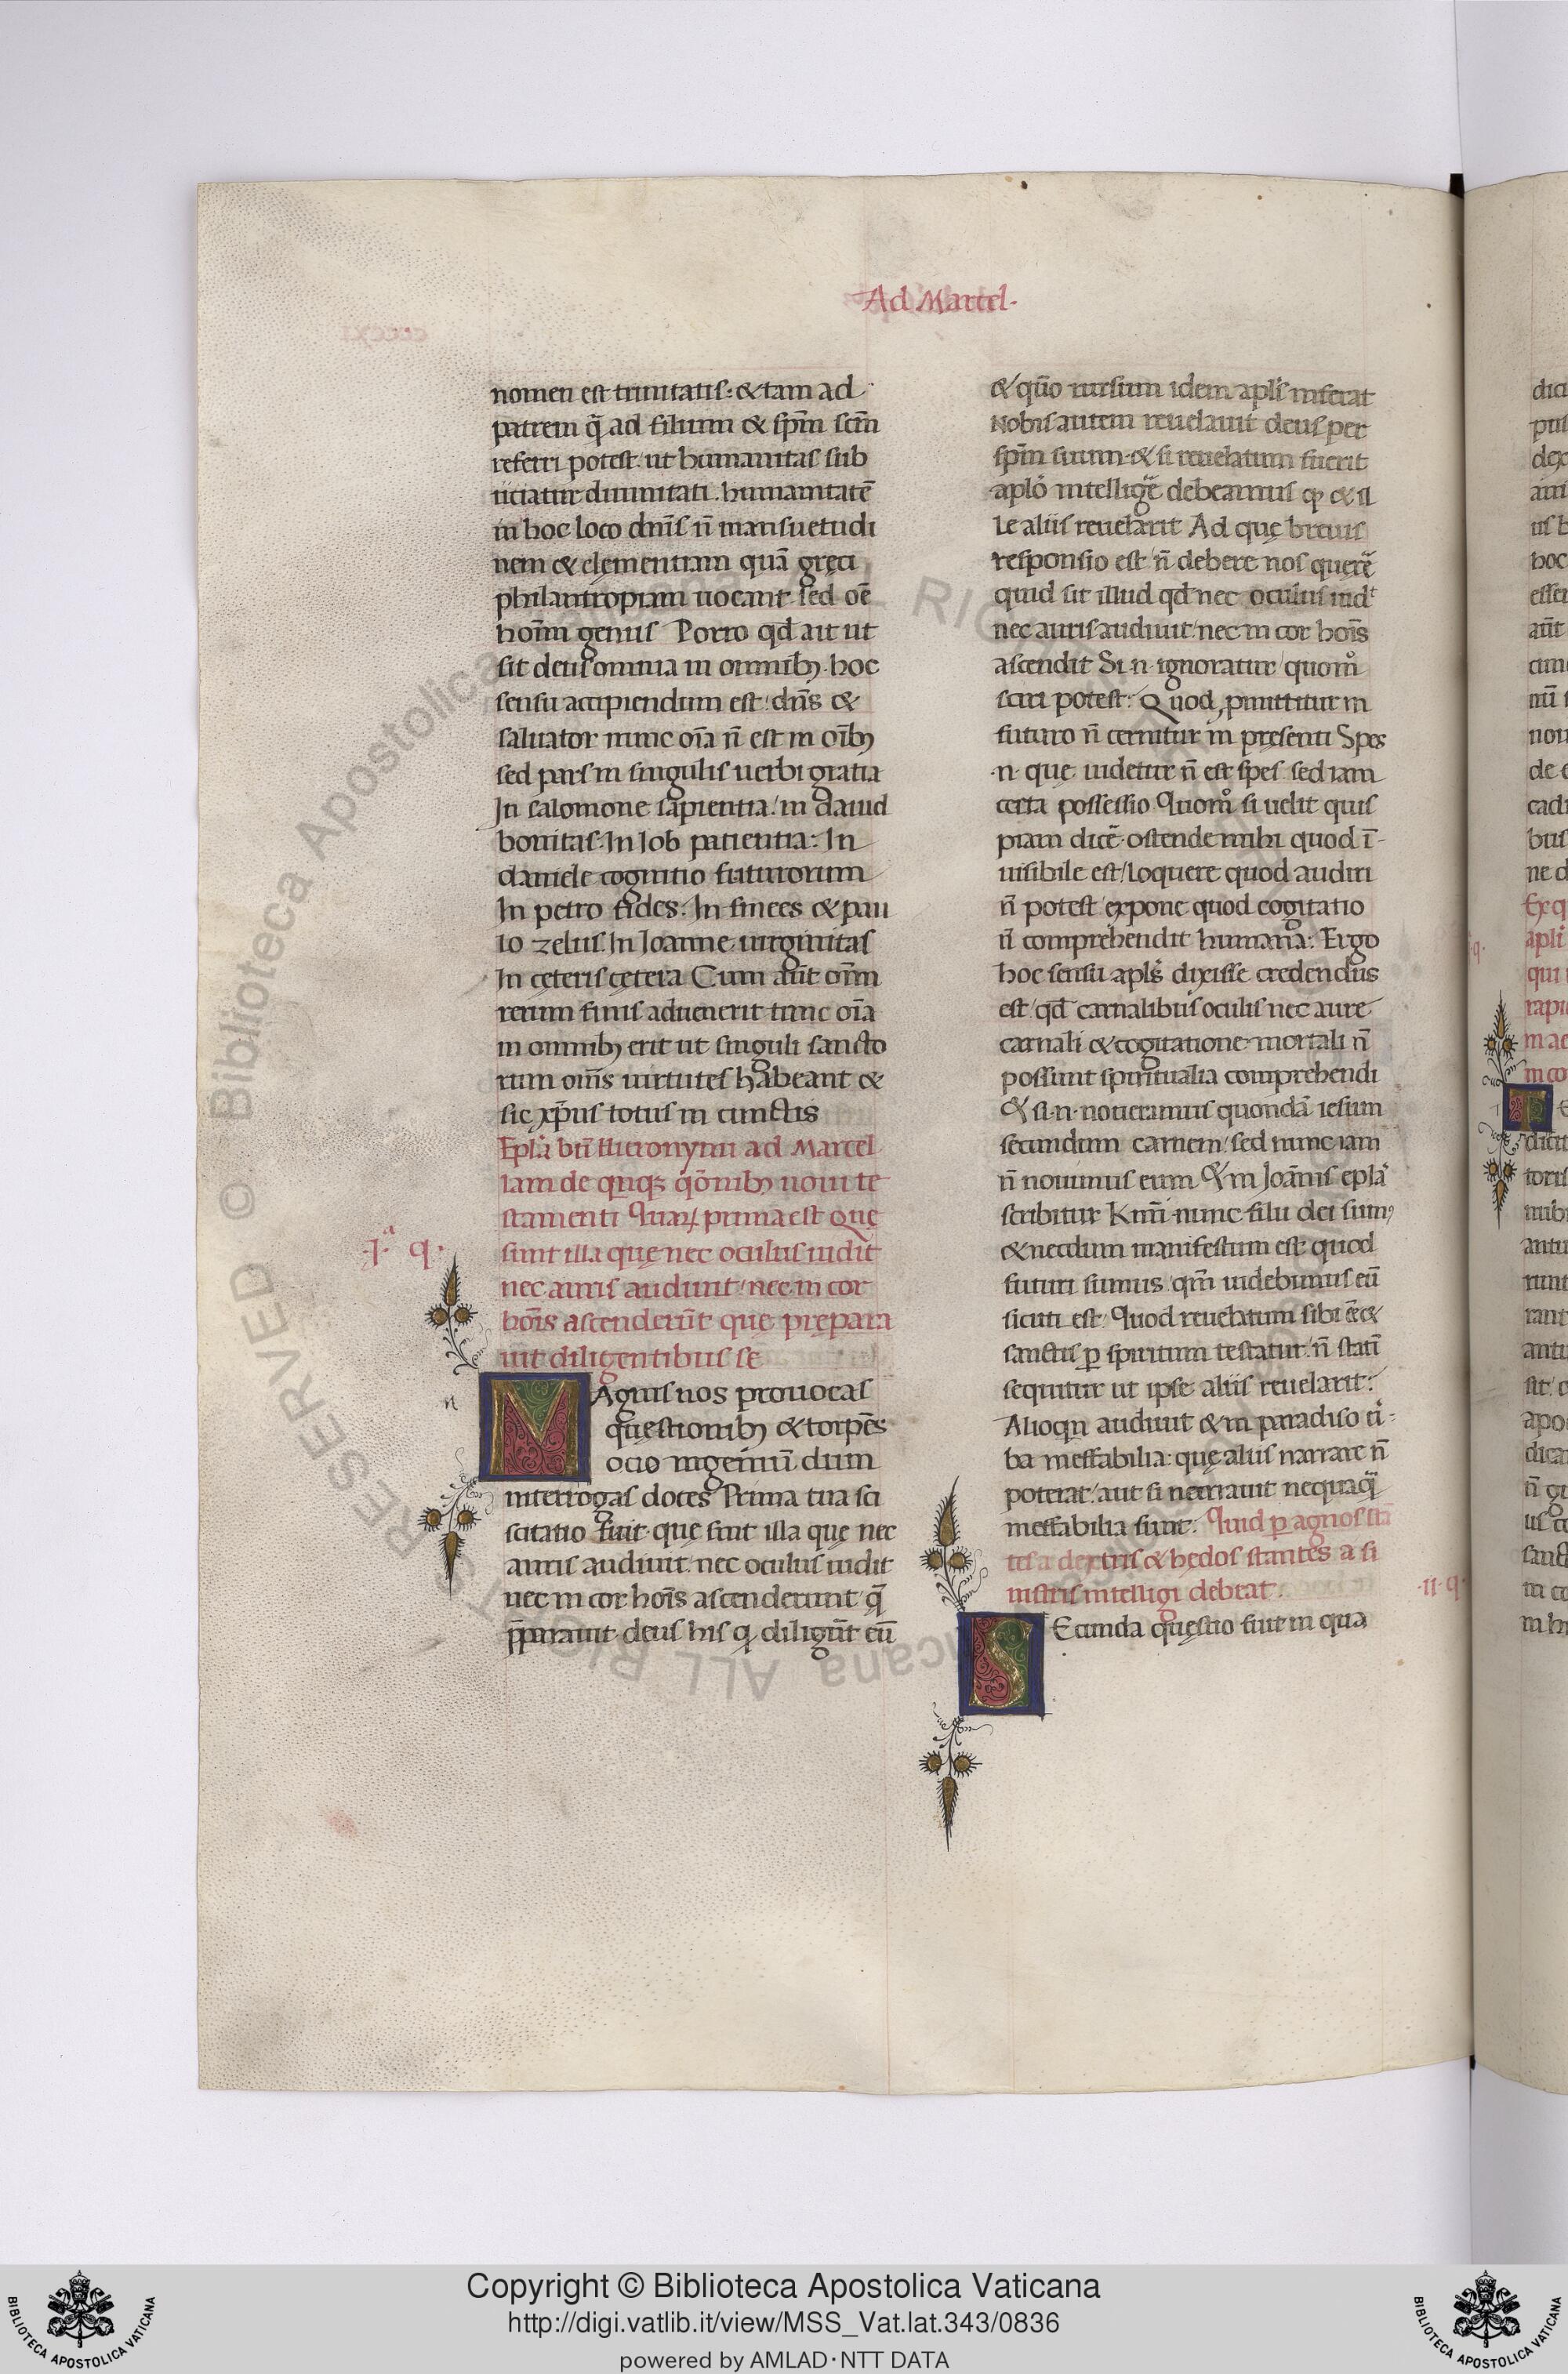 Ad Marcel.
nomen est trinitatis: & tam ad
patrem q̃ ad filium & sp̄m sc̄m
referri potest. ut humanitas sub
iiciatur diuinitati. humanitatē
in hoc loco dn̄is n̄ mansuetudi
nem & clęmentiam quā gręci
philantropiam uocant. sed oē
hoīm genus Porro qđ ait ut
sit deus omnia in omnibꝫ. hoc
sensu accipiendum est. dn̄s &
saluator nunc oīa n̄ est in oībꝫ
sed pars in singulis uerbi gratia
In salomone sapientia: in dauid
bonitas. In Iob patientia: In
daniele cognitio futurorum
In petro fides: In finees & pau
lo zelus. In Ioanne uirginitas
In cęteris cętera Cum aūt om̄m
rerum finis aduenerit tunc oīa
in omnibꝫ erit ut singuli sancto
rum om̄s uirtutes habeant &
sic xp̄us totus in cunctis
Epl̃a bt̄i Hieronymi ad Marcel
lam de qnqꝫ qōnibꝫ noui te
stamenti Quaꝝ prima est Quę
sunt illa quę nec oculus uidit
nec auris audiuit. nec in cor
hoīs ascenderūt que prępara
uit diligentibus se
.I.ª q.
n
MAgnis nos prouocas
quęstionibꝫ & torpēs
ocio ingeniū. dum
interrogas doces Prima tua sci
scitatio fuit. quę sint illa quę nec
auris audiuit. nec oculus uidit
nec in cor hoīs ascenderunt. q̄
p̄parauit deus his q diligūt eū
& quō rursum idem apl̃s inferat
Nobis autem reuelauit deus per
sp̄m suum. & si reuelatum fuerit
aplo intelligē debeamus qͦ & il
le aliis reuelarit Ad quę breuis
responsio est. n̄ debere nos querē
quid sit illud qđ nec oculus uidͭ
nec auris audiuit. nec in cor hoīs
ascendit Si .n. ignoratur quomͦ
sciri potest: Quod pmittitur in
futuro n̄ cernitur in pręsenti Spes
.n. quę uidetur n̄ est spes. sed iam
certa possessio Quomͦ si uelit quis
piam dicē. ostende mihi quod ī-
uisibile est/ loquere quod audiri
n̄ potest/ expone quod cogitatio
n̄ comprehendit humana: Ergo
hoc sensu apl̃s dixisse credendus
est. qđ carnalibus oculis nec aure
carnali & cogitatione mortali n̄
possunt spiritualia comprehendi
Et si .n. noueramus quondā iesum
secundum carnem. sed nunc iam
n̄ nouimus eum Et in Joānis epl̃a
scribitur Kmī nunc filii dei sumꝰ
& necdum manifestum est quod
futuri sumus. qm̄ uidebimus eū
sicuti est. Quod reuelatum sibi ēē &
sanctis p spiritum testatur. n̄ statī
sequitur ut ipse aliis reuelarit:
Alioqn audiuit & in paradiso ũ-
ba ineffabilia: quę aliis narrare n̄
poterat. aut si necnauit nequaq̃
ineffabilia sunt: Quid p agnos stā
tes a dextris & hędos stantes a si
nistris intelligi debeat.
.II. q.
SEcunda quęstio fuit in qua
Copyright © Biblioteca Apostolica Vaticana
http://digi.vatlib.it/view/MSS_Vat.lat.343/0836
powered by AMLAD·NTT DATA
BIBLIOTECA APOSTOLICA VATICANA
BIBLIOTECA APOSTOLICA VATICANA